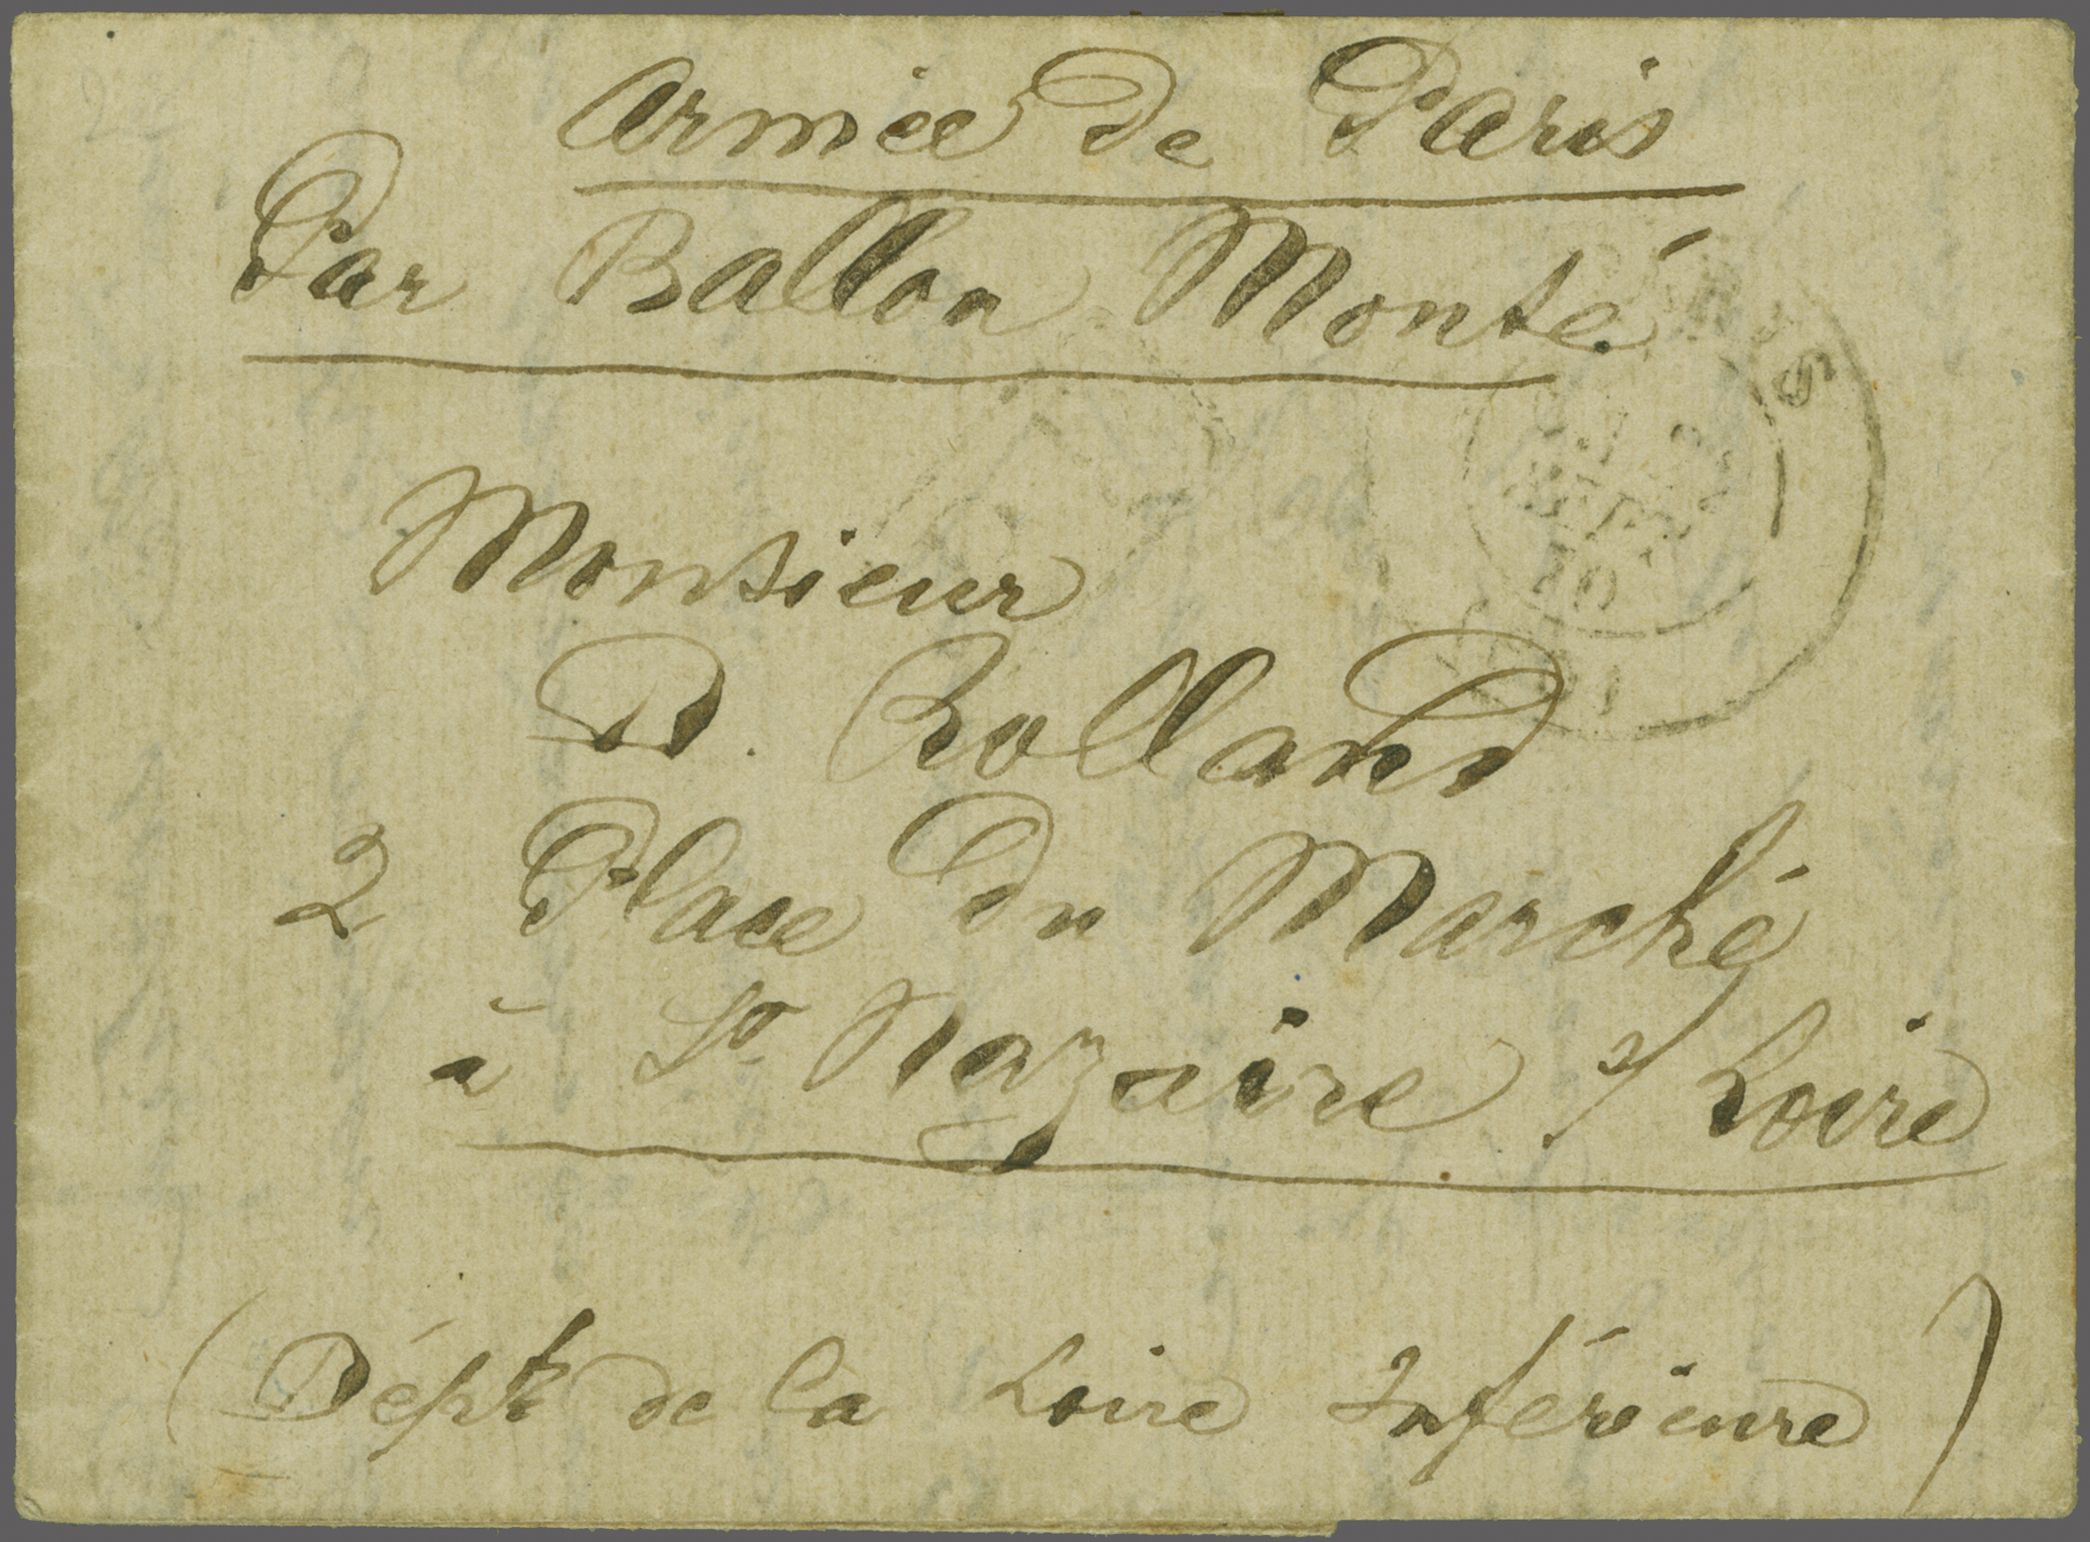 Armée de Paris
Par Ballon Monté.
PARIS
Monsieur
D. Rolland
2 Place du Marché
à St. Nazaire s/ Loire
(Dépt de la Loire Inférieure)